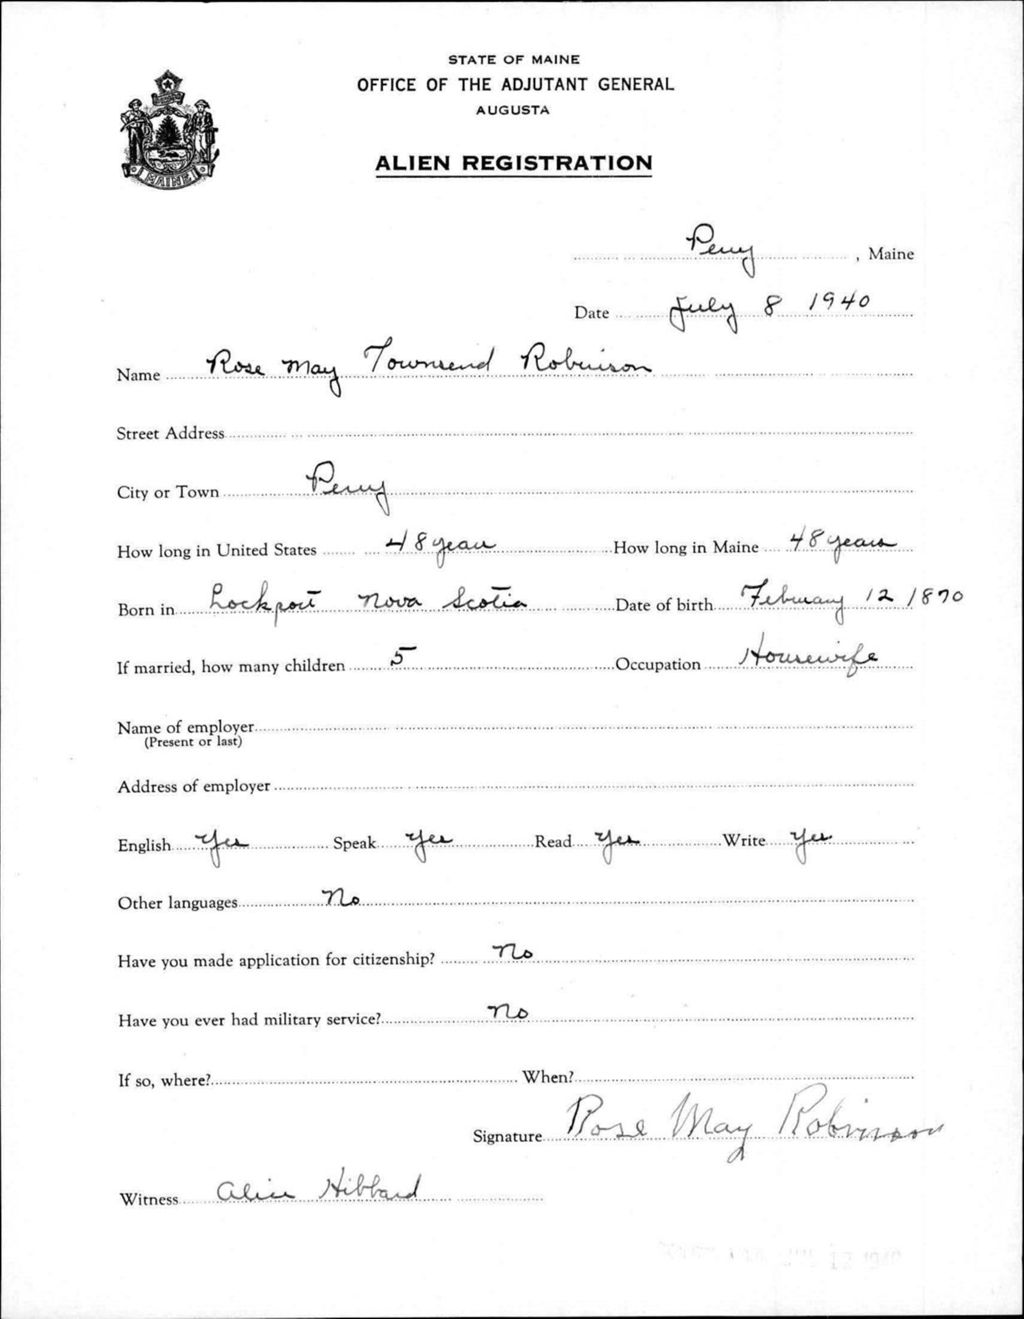 STATE OF MAINE
OFFICE OF THE ADJUTANT GENERAL
AUGUSTA
ALIEN REGISTRATION
MAINE
Perry, Maine
Date July 8 1940
Name Rose May Townsend Robinson
Street Address
City or Town Perry
How long in United States 48 years How long in Maine 48 years
Born in Lockport Nova Scotia Date of birth February 12 1870
If married, how many children 5 Occupation Housewife
Name of employer
(Present or last)
Address of employer
English Yes Speak Yes Read Yes Write Yes
Other languages No
Have you made application for citizenship? No
Have you ever had military service? No
If so, where? When?
Signature Rose May Robinson
Witness Alice Hibbard
12 1940